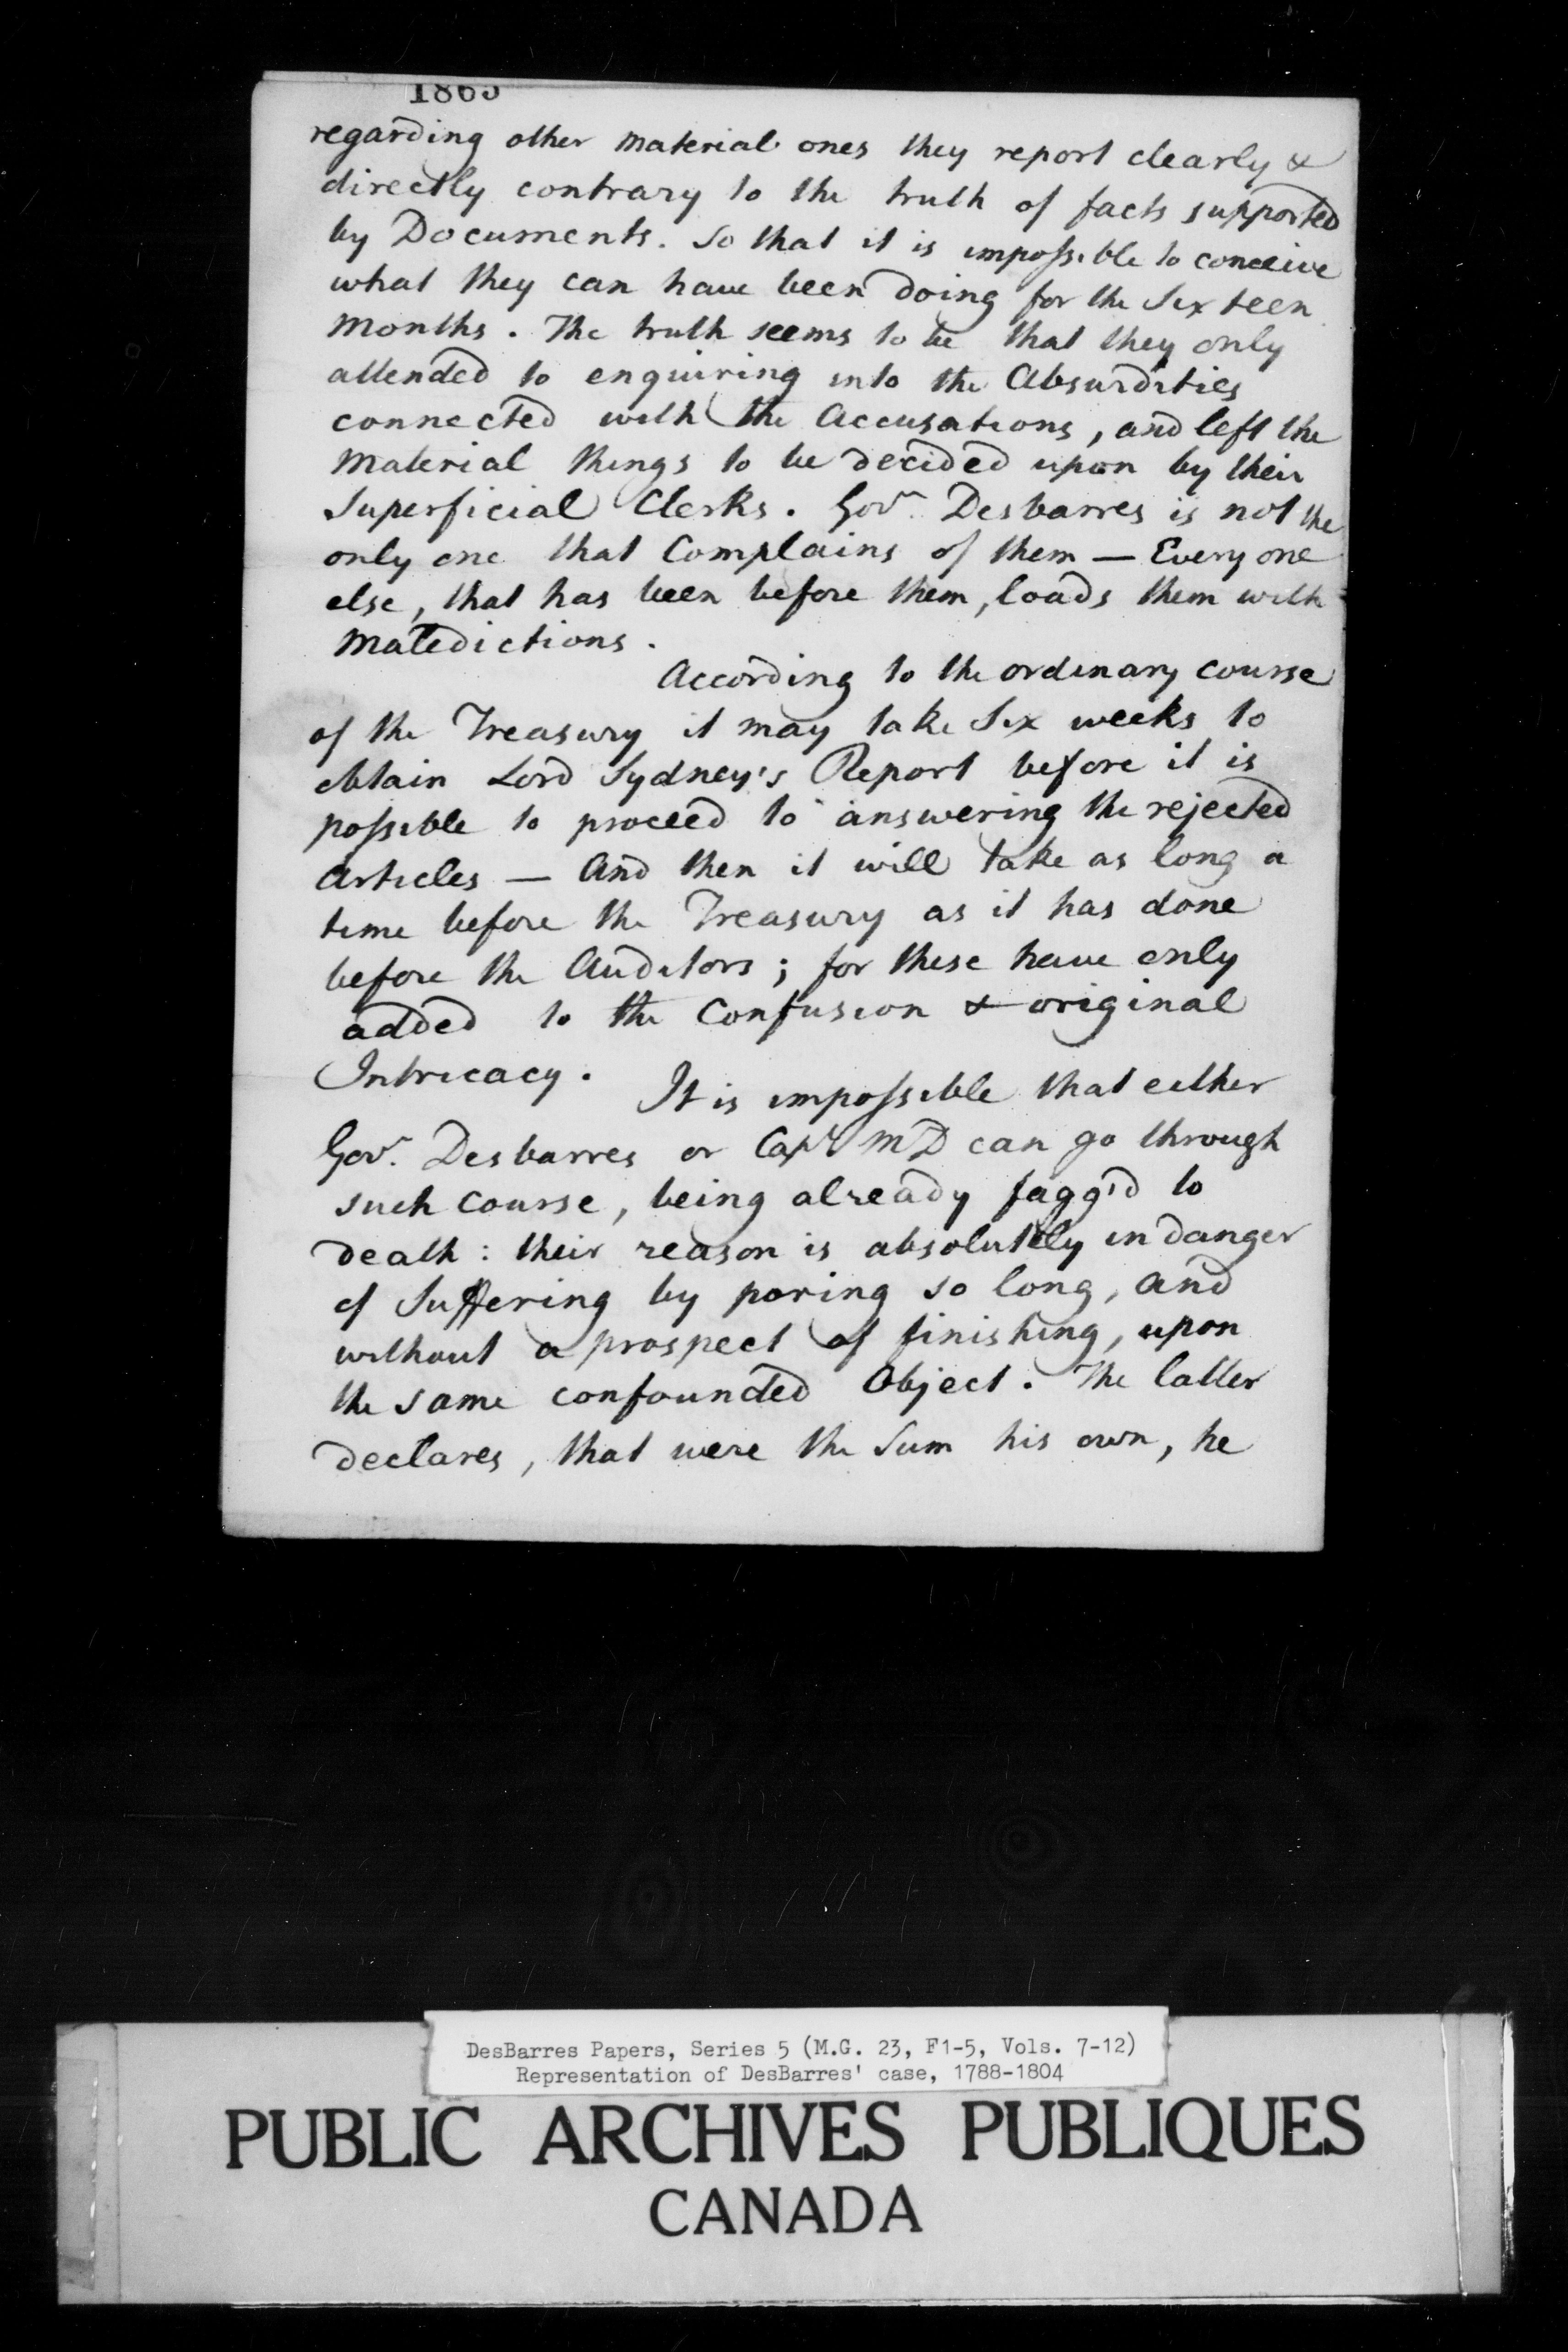 1865
regarding other material ones they report clearly &
directly contrary to the truth of facts supported
by Documents. So that it is impossible to conceive
what they can have been doing for the Sixteen
Months. The truth seems to be that they only
attended to enquiring into the Absurdities
connected with the Accusations, and left the
Material things to be decided upon by their
Superficial Clerks. Govr. Desbarres is not the
only one that Complains of them — Every one
else, that has been before them, loads them with
Maledictions.
According to the ordinary course
of the Treasury it may take Six weeks to
obtain Lord Sydney's Report before it is
possible to proceed to answering the rejected
Articles — And then it will take as long a
time before the Treasury as it has done
before the Auditors; for these have only
added to the Confusion & original
Intricacy. It is impossible that either
Govr. Desbarres or Capt MD can go through
such course, being already fagg'd to
death: their reason is absolutely in danger
of Suffering by poring so long, and
without a prospect of finishing, upon
the same confounded Object. The latter
declares, that were the Sum his own, he
DesBarres Papers, Series 5 (M.G. 23, F1-5, Vols. 7-12)
Representation of DesBarres' case, 1788-1804
PUBLIC ARCHIVES PUBLIQUES
CANADA